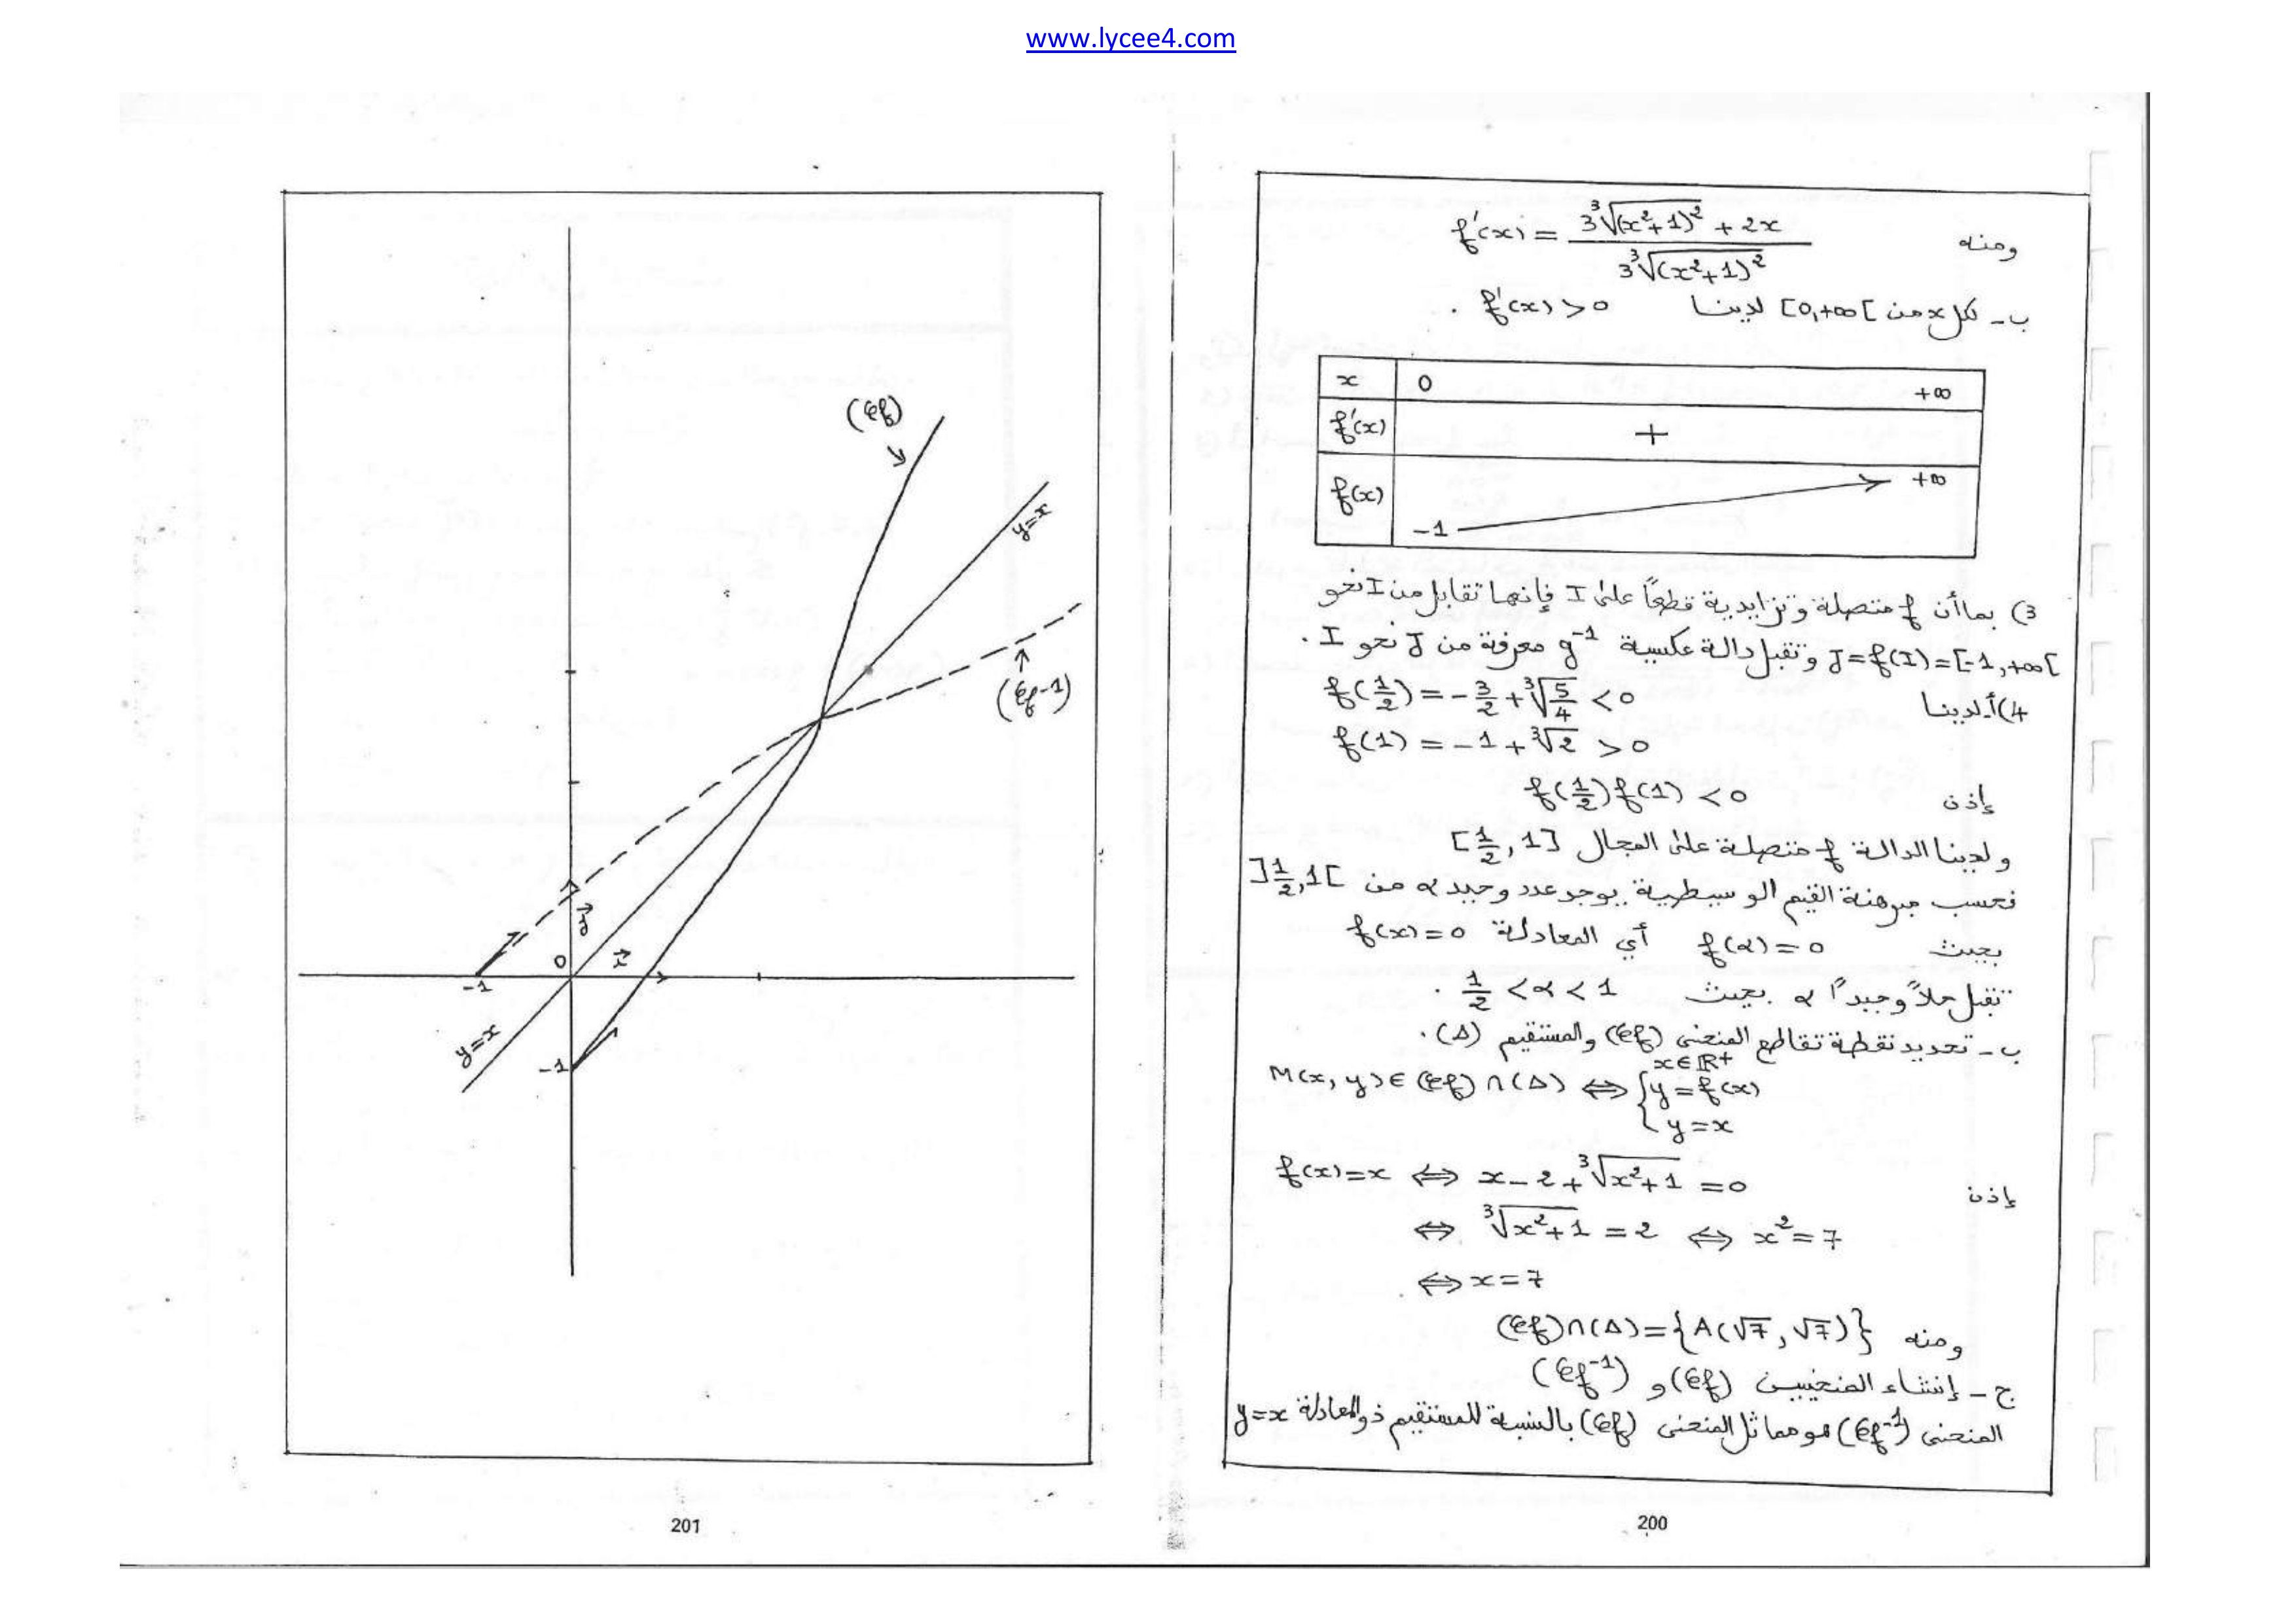 www.lycee4.com
ومنه f'(x) = (3∛(x²+1)² + 2x) / (3∛(x²+1)²)
ب - لكل x من [0,+∞[ لدينا f'(x) > 0 .
x 0 +∞
f'(x) +
f(x) -1 +∞
3) بما أن f متصلة وتزايدية قطعاً على I فإنها تقابل من I نحو
J=f(I)=[-1,+∞[ وتقبل دالة عكسية g⁻¹ معرفة من J نحو I .
4) أ. لدينا f(1/2) = -3/2 + ∛(5/4) < 0
f(1) = -1 + ∛2 > 0
إذن f(1/2) f(1) < 0
ولدينا الدالة f متصلة على المجال [1/2, 1]
فحسب مبرهنة القيم الوسيطية يوجد عدد وحيد α من ]1/2, 1[
بحيث f(α) = 0 أي المعادلة f(x) = 0
تقبل حلاً وحيداً α بحيث 1/2 < α < 1 .
ب - تحديد نقطة تقاطع المنحنى (𝒞f) والمستقيم (Δ) .
x ∈ ℝ+
M(x, y) ∈ (𝒞f) ∩ (Δ) ⇔ { y = f(x)
y = x
إذن f(x) = x ⇔ x - 2 + ∛(x²+1) = 0
⇔ ∛(x²+1) = 2 ⇔ x² = 7
⇔ x = 7
ومنه (𝒞f) ∩ (Δ) = {A(√7, √7)}
ج - إنشاء المنحنيين (𝒞f) و (𝒞f⁻¹)
المنحنى (𝒞f⁻¹) هو مماثل المنحنى (𝒞f) بالنسبة للمستقيم ذو المعادلة y=x
200
(𝒞f)
y=x
(𝒞f-1)
j
0
i
-1
y=x
-1
201